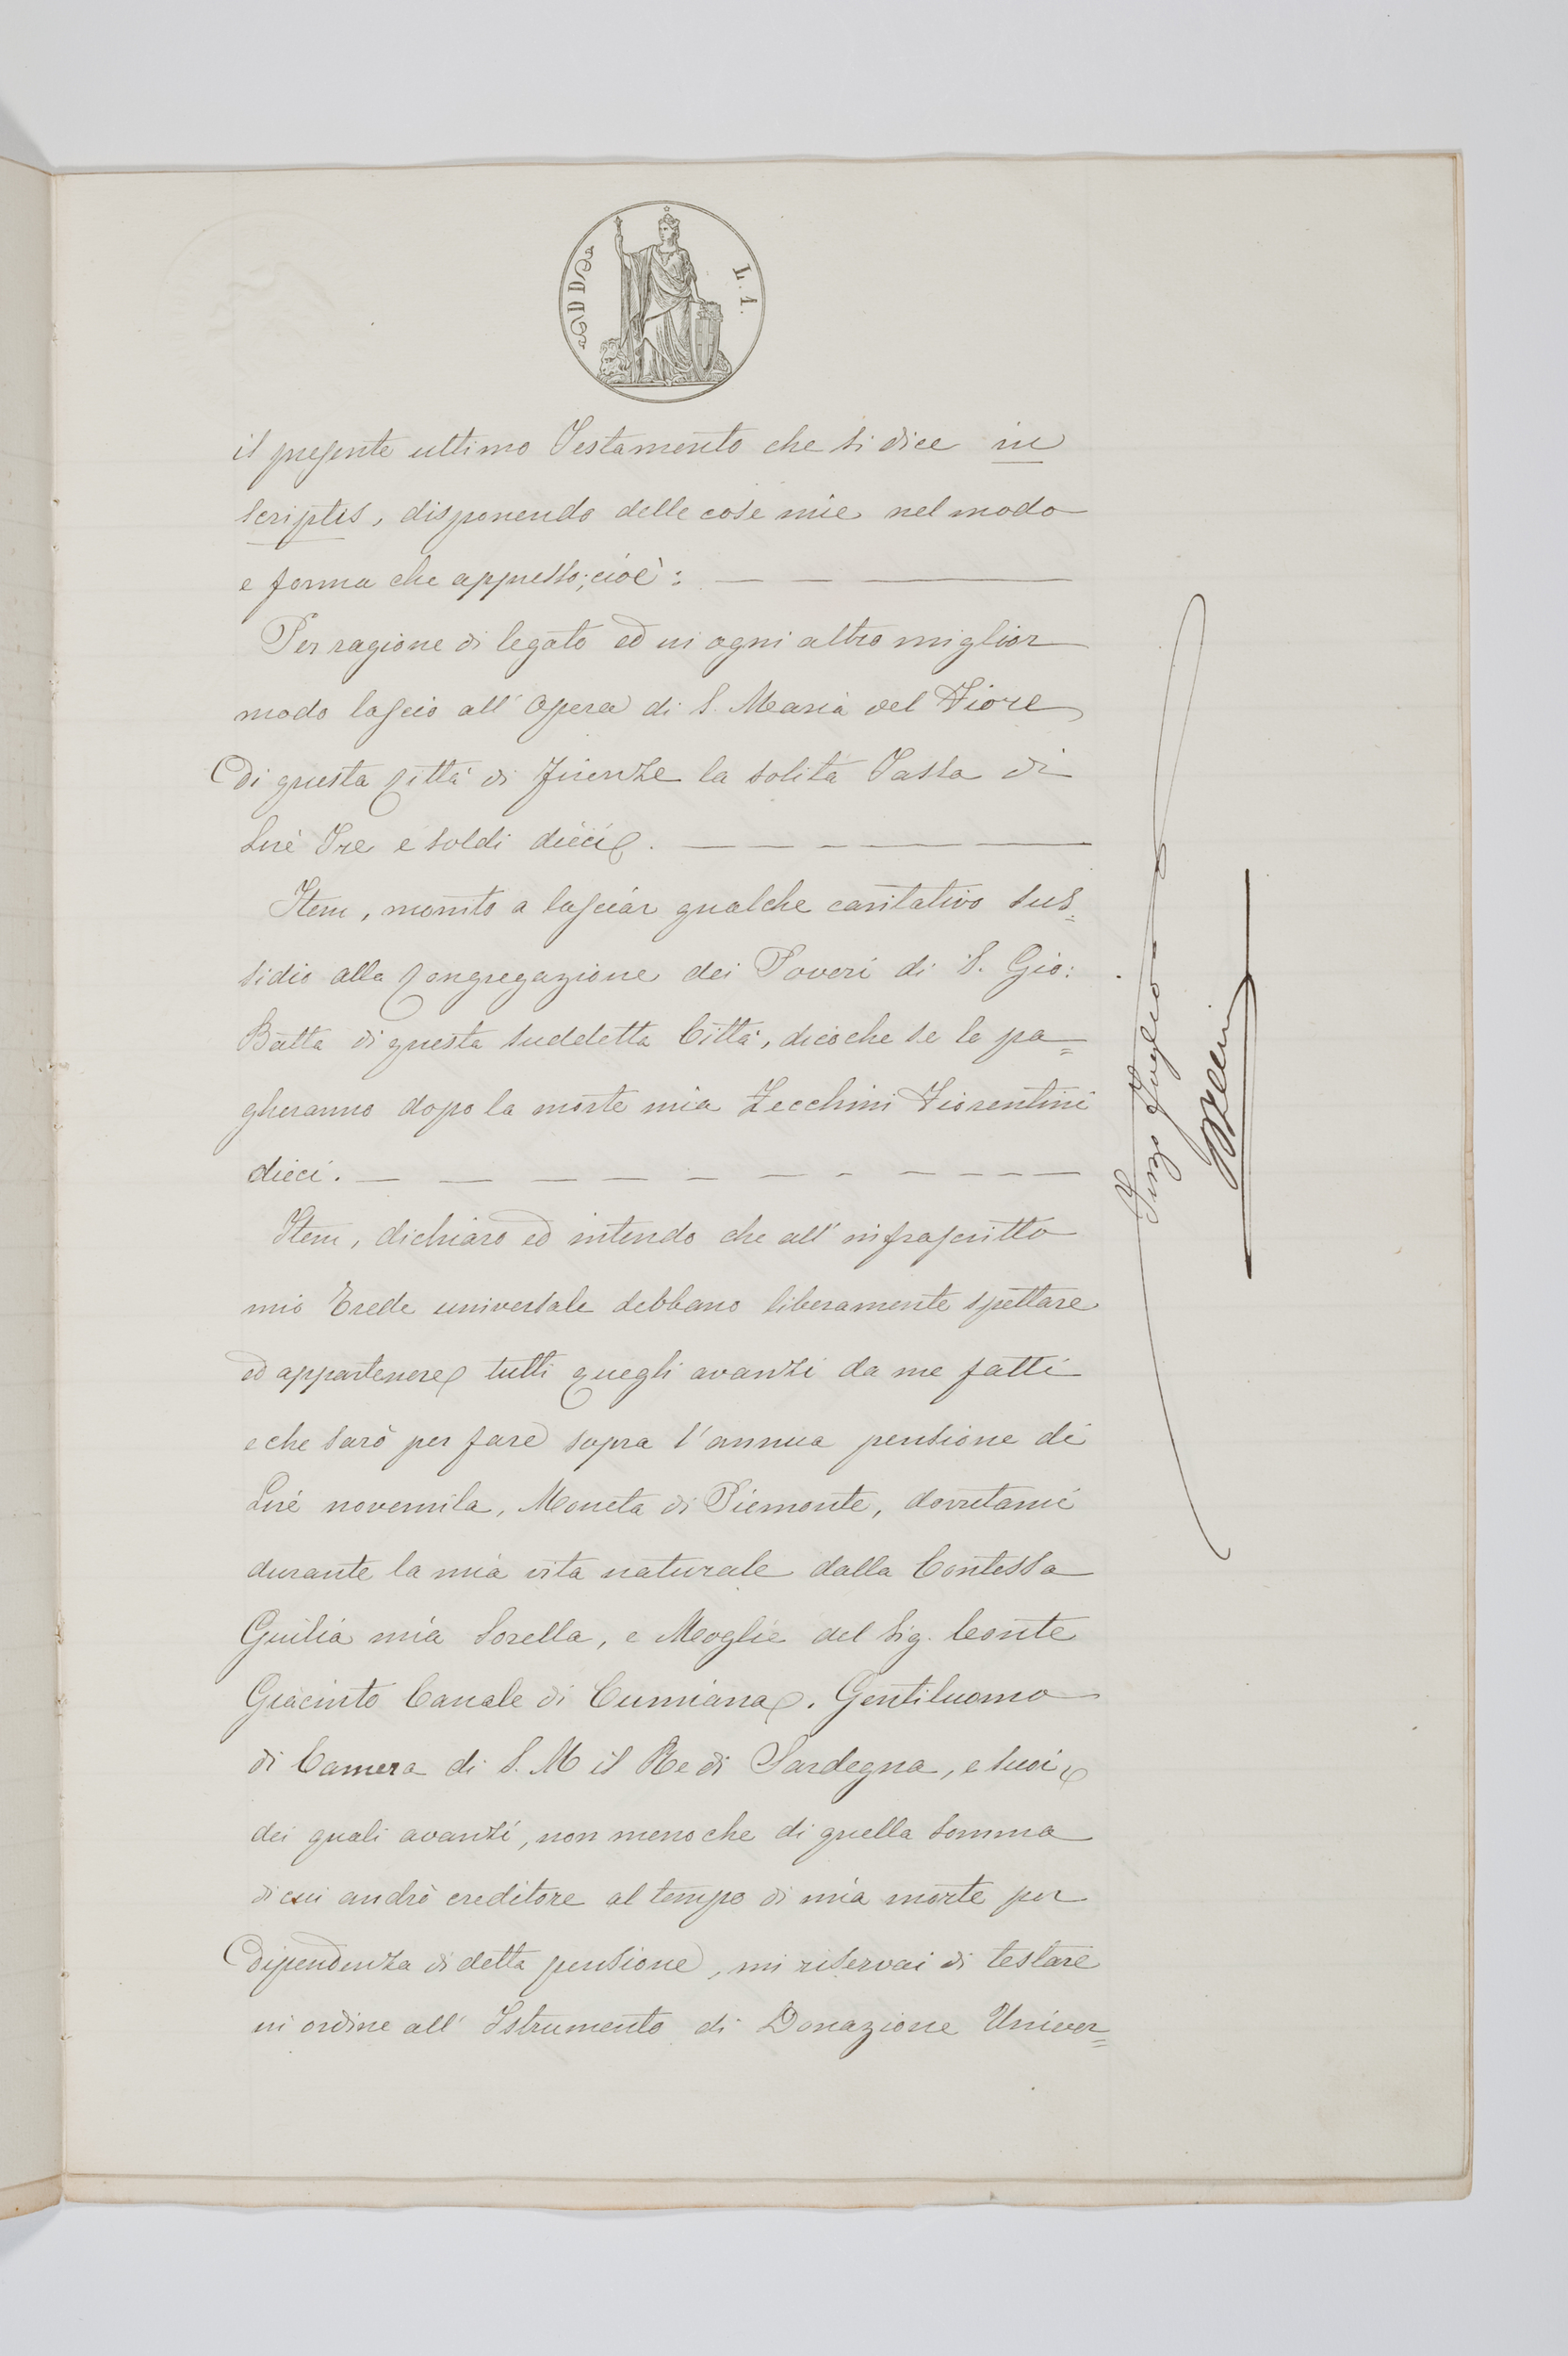 L. 1.
il presente ultimo Testamento che si dice in
scriptis, disponendo delle cose mie nel modo
e forma che appresso; cioè:
Per ragione di legato ed in ogni altro miglior
modo lascio all' Opera di S. Maria del Fiore
di questa Città di Firenze la solita Tassa di
Lire Tre e soldi dieci.
Item, monito a lasciar qualche caritativo sus=
sidio alla Congregazione dei Poveri di S. Gio:
Batta di questa suddetta Città, dico che se le pa=
gheranno dopo la morte mia Zecchini Fiorentini
dieci.
Item, dichiaro ed intendo che all' infrascritto
mio Erede universale debbano liberamente spettare
ed appartenere tutti quegli avanzi da me fatti
e che sarò per fare sopra l'annua pensione di
Lire novemila, Moneta di Piemonte, dovutami
durante la mia vita naturale dalla Contessa
Giulia mia Sorella, e Moglie del Sig. Conte
Giacinto Canale di Cumiana, Gentiluomo
di Camera di S. M il Re di Sardegna, e suoi,
dei quali avanzi, non meno che di quella somma
di cui andrò creditore al tempo di mia morte per
dipendenza di detta pensione, mi riservai di testare
in ordine all' Istrumento di Donazione Univer=
Terzo Foglio